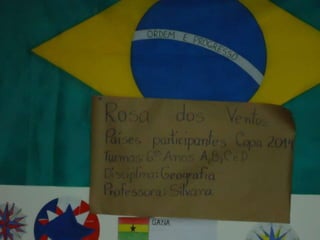 ORDEM E PROGRESSO
Rosa dos Ventos
Países participantes Copa 2014
Turmas: 6ºs Anos A, B, C e D
Disciplina: Geografia
Professora: Silvana
GANA